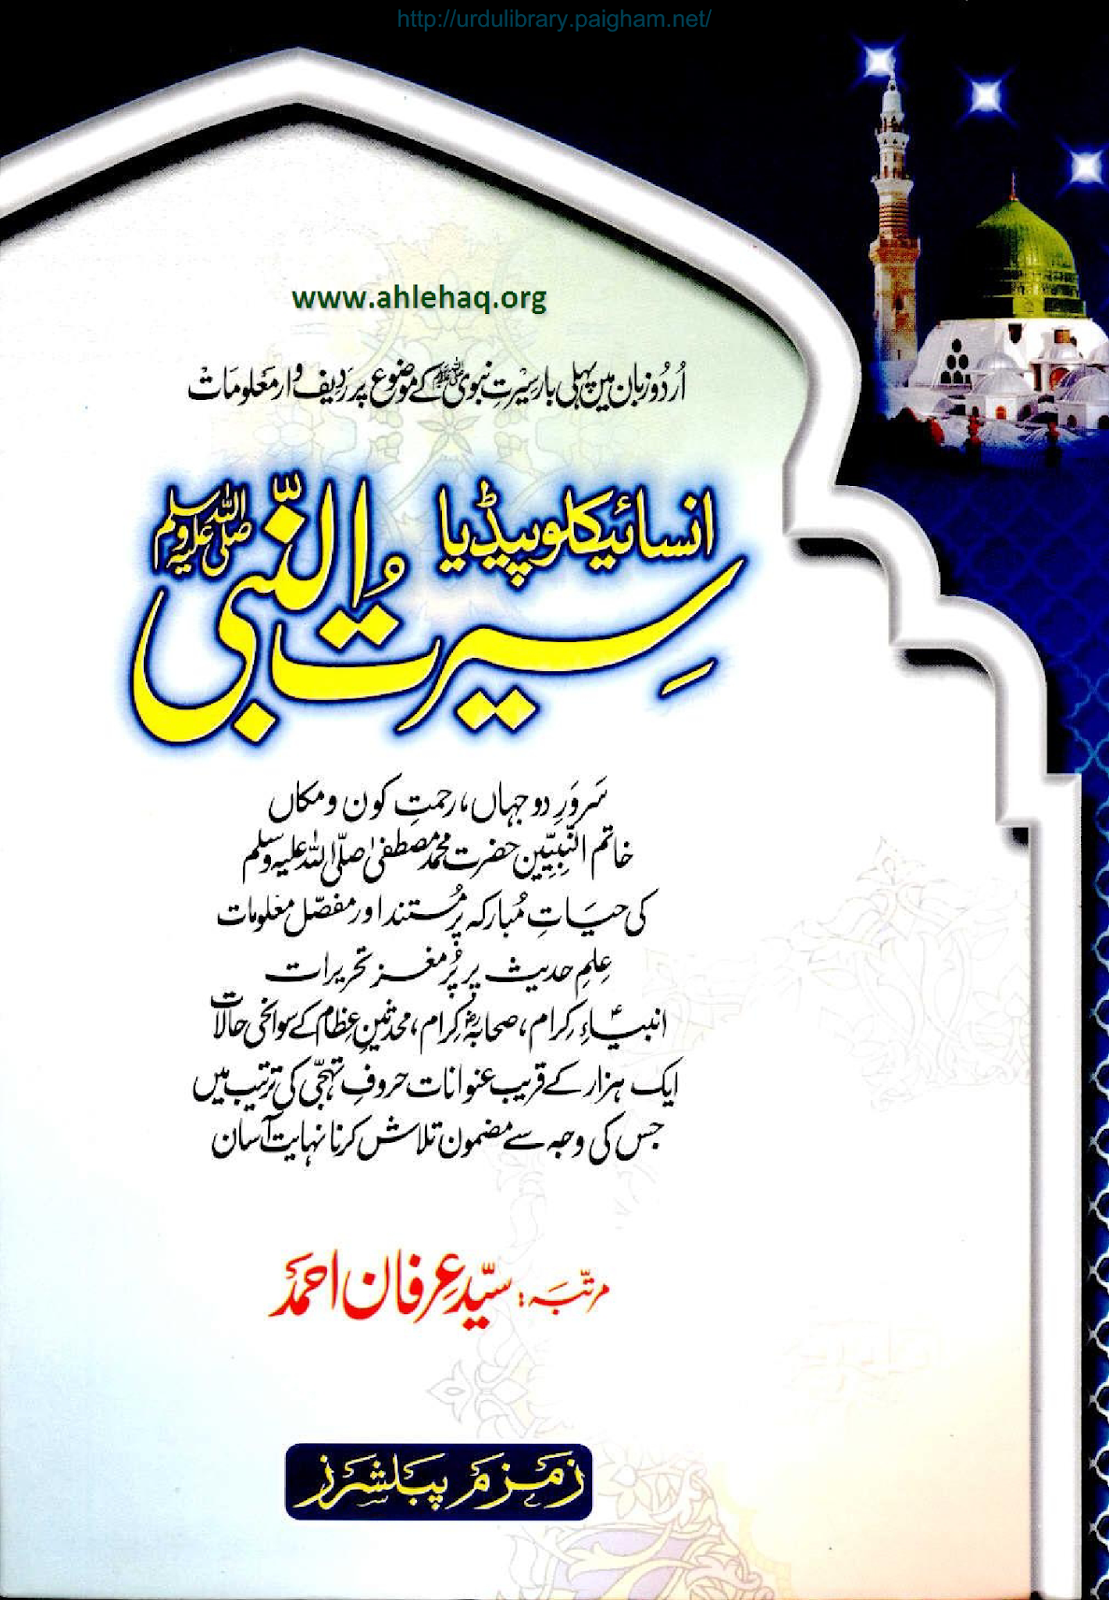 http://urdulibrary.paigham.net/
www.ahlehaq.org
اُردو زبان میں پہلی بار سیرتِ نبوی ﷺ کے موضوع پر ردیف وار معلومات
انسائیکلوپیڈیا
سِیرتُ النّبی صلی اللہ علیہ وسلم
سَروَرِ دو جہاں، رحمتِ کون و مکاں
خاتم النّبیّین حضرت محمد مصطفیٰ صلّی اللہ علیہ وسلم
کی حیاتِ مُبارکہ پر مُستند اور مفصّل معلومات
عِلمِ حدیث پر پُرمغز تحریرات
انبیاءِ کرام، صحابہ کرام، محدثینِ عظام کے سوانحی حالات
ایک ہزار کے قریب عنوانات حروفِ تہجّی کی ترتیب میں
جس کی وجہ سے مضمون تلاش کرنا نہایت آسان
مرتّبہ: سیّد عِرفان احمد
زمزم پبلشرز